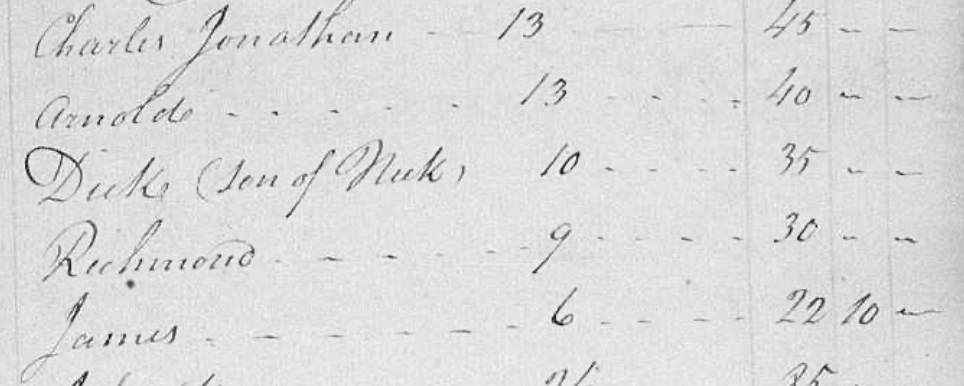 Charles Jonathan - - 13 - - - 45 - -
Arnold - - - - - 13 - - - - 40 - -
Dick (son of Nick) 10 - - - - 35 - -
Richmond - - - - - 9 - - - - 30 - -
James - - - - - - - 6 - - - - 22 10 -
35